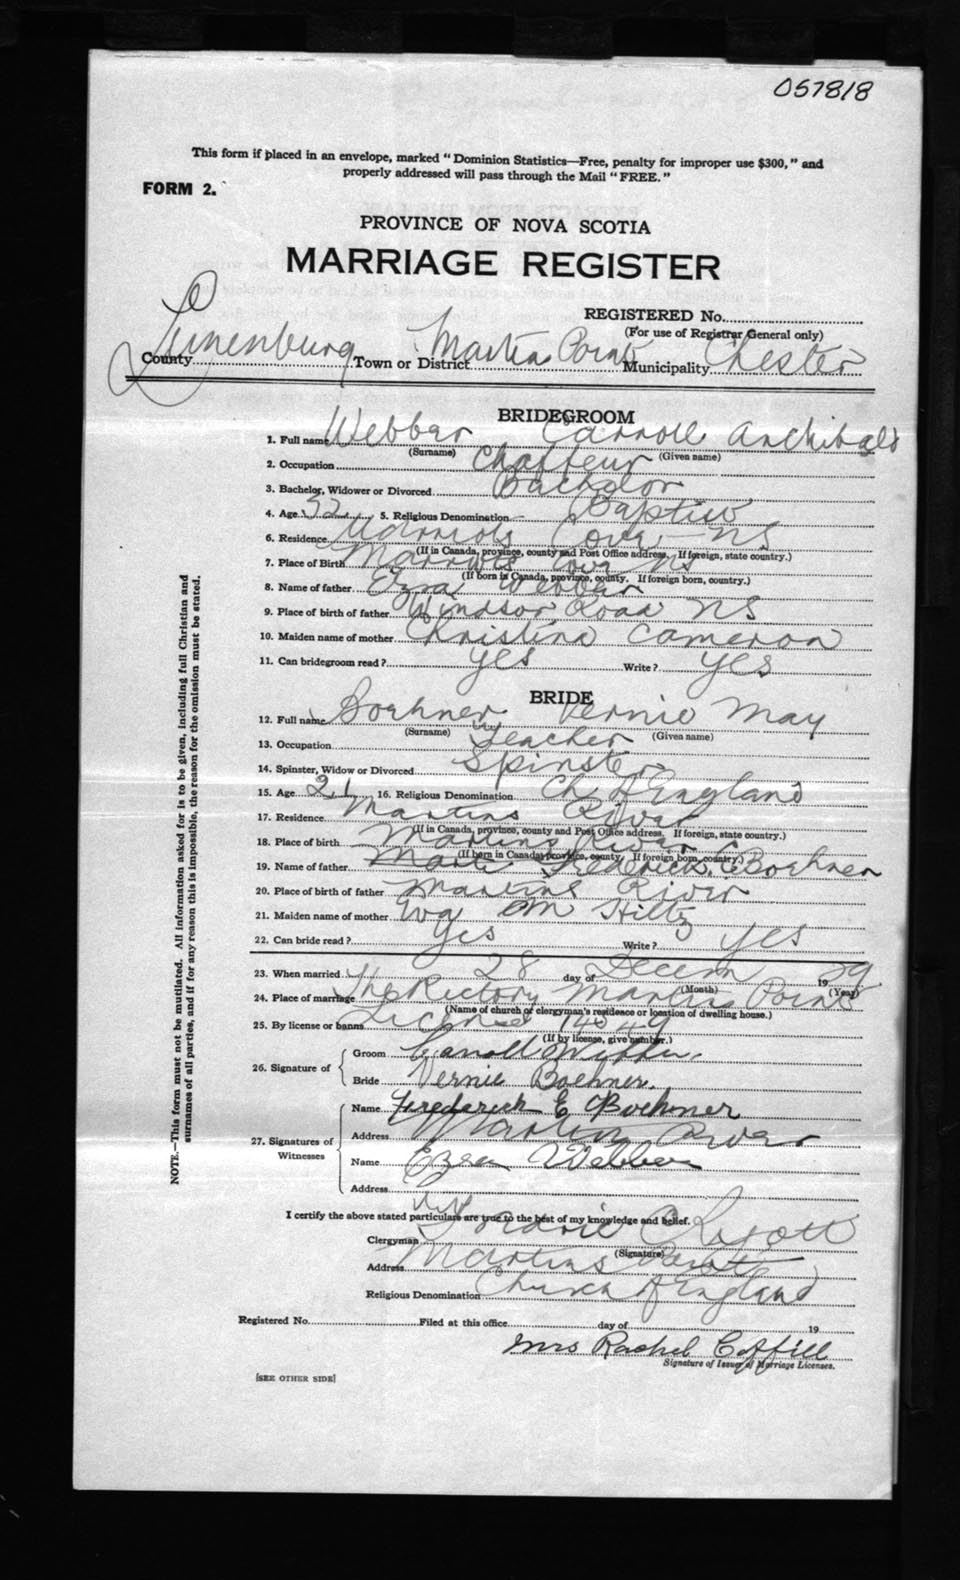 057818
This form if placed in an envelope, marked "Dominion Statistics—Free, penalty for improper use $300," and
properly addressed will pass through the Mail "FREE."
FORM 2.
PROVINCE OF NOVA SCOTIA
MARRIAGE REGISTER
REGISTERED No.
(For use of Registrar General only)
County Lunenburg Town or District Martins Point Municipality Chester
BRIDEGROOM
1. Full name Webber Carroll Archibald
(Surname) (Given name)
2. Occupation Chaffeur
3. Bachelor, Widower or Divorced Bachelor
4. Age 32 5. Religious Denomination Baptist
6. Residence Marriots Cove NS
(If in Canada, province, county and Post Office address. If foreign, state country.)
7. Place of Birth Marriots Cove NS
(If born in Canada, province, county. If foreign born, country.)
8. Name of father Ezra Webber
9. Place of birth of father Windsor Road NS
10. Maiden name of mother Christina Cameron
11. Can bridegroom read? yes Write? yes
BRIDE
12. Full name Boehner Vernie May
(Surname) (Given name)
13. Occupation Teacher
14. Spinster, Widow or Divorced Spinster
15. Age 21 16. Religious Denomination Ch of England
17. Residence Martins River
(If in Canada, province, county and Post Office address. If foreign, state country.)
18. Place of birth Martins River
(If born in Canada, province, county. If foreign born, country.)
19. Name of father Frederick Boehner
20. Place of birth of father Martins River
21. Maiden name of mother Eva M Hiltz
22. Can bride read? Yes Write? yes
23. When married 28 day of Decem 1939
(Month) (Year)
24. Place of marriage The Rectory Martins Point
(Name of church or clergyman's residence or location of dwelling house.)
25. By license or banns License
(If by license, give number.)
26. Signature of Groom Carroll Webber.
Bride Vernie Boehner.
27. Signatures of Witnesses Name Frederick E Boehner
Address Martins River
Name Ezra Webber
Address
I certify the above stated particulars are true to the best of my knowledge and belief.
Clergyman
(Signature)
Address Martins Point
Religious Denomination Church of England
Registered No. Filed at this office day of 19
Mrs Rachel Coffill
Signature of Issuer of Marriage Licenses.
[SEE OTHER SIDE]
NOTE.—This form must not be mutilated. All information asked for is to be given, including full Christian and
surnames of all parties, and if for any reason this is impossible, the reason for the omission must be stated.